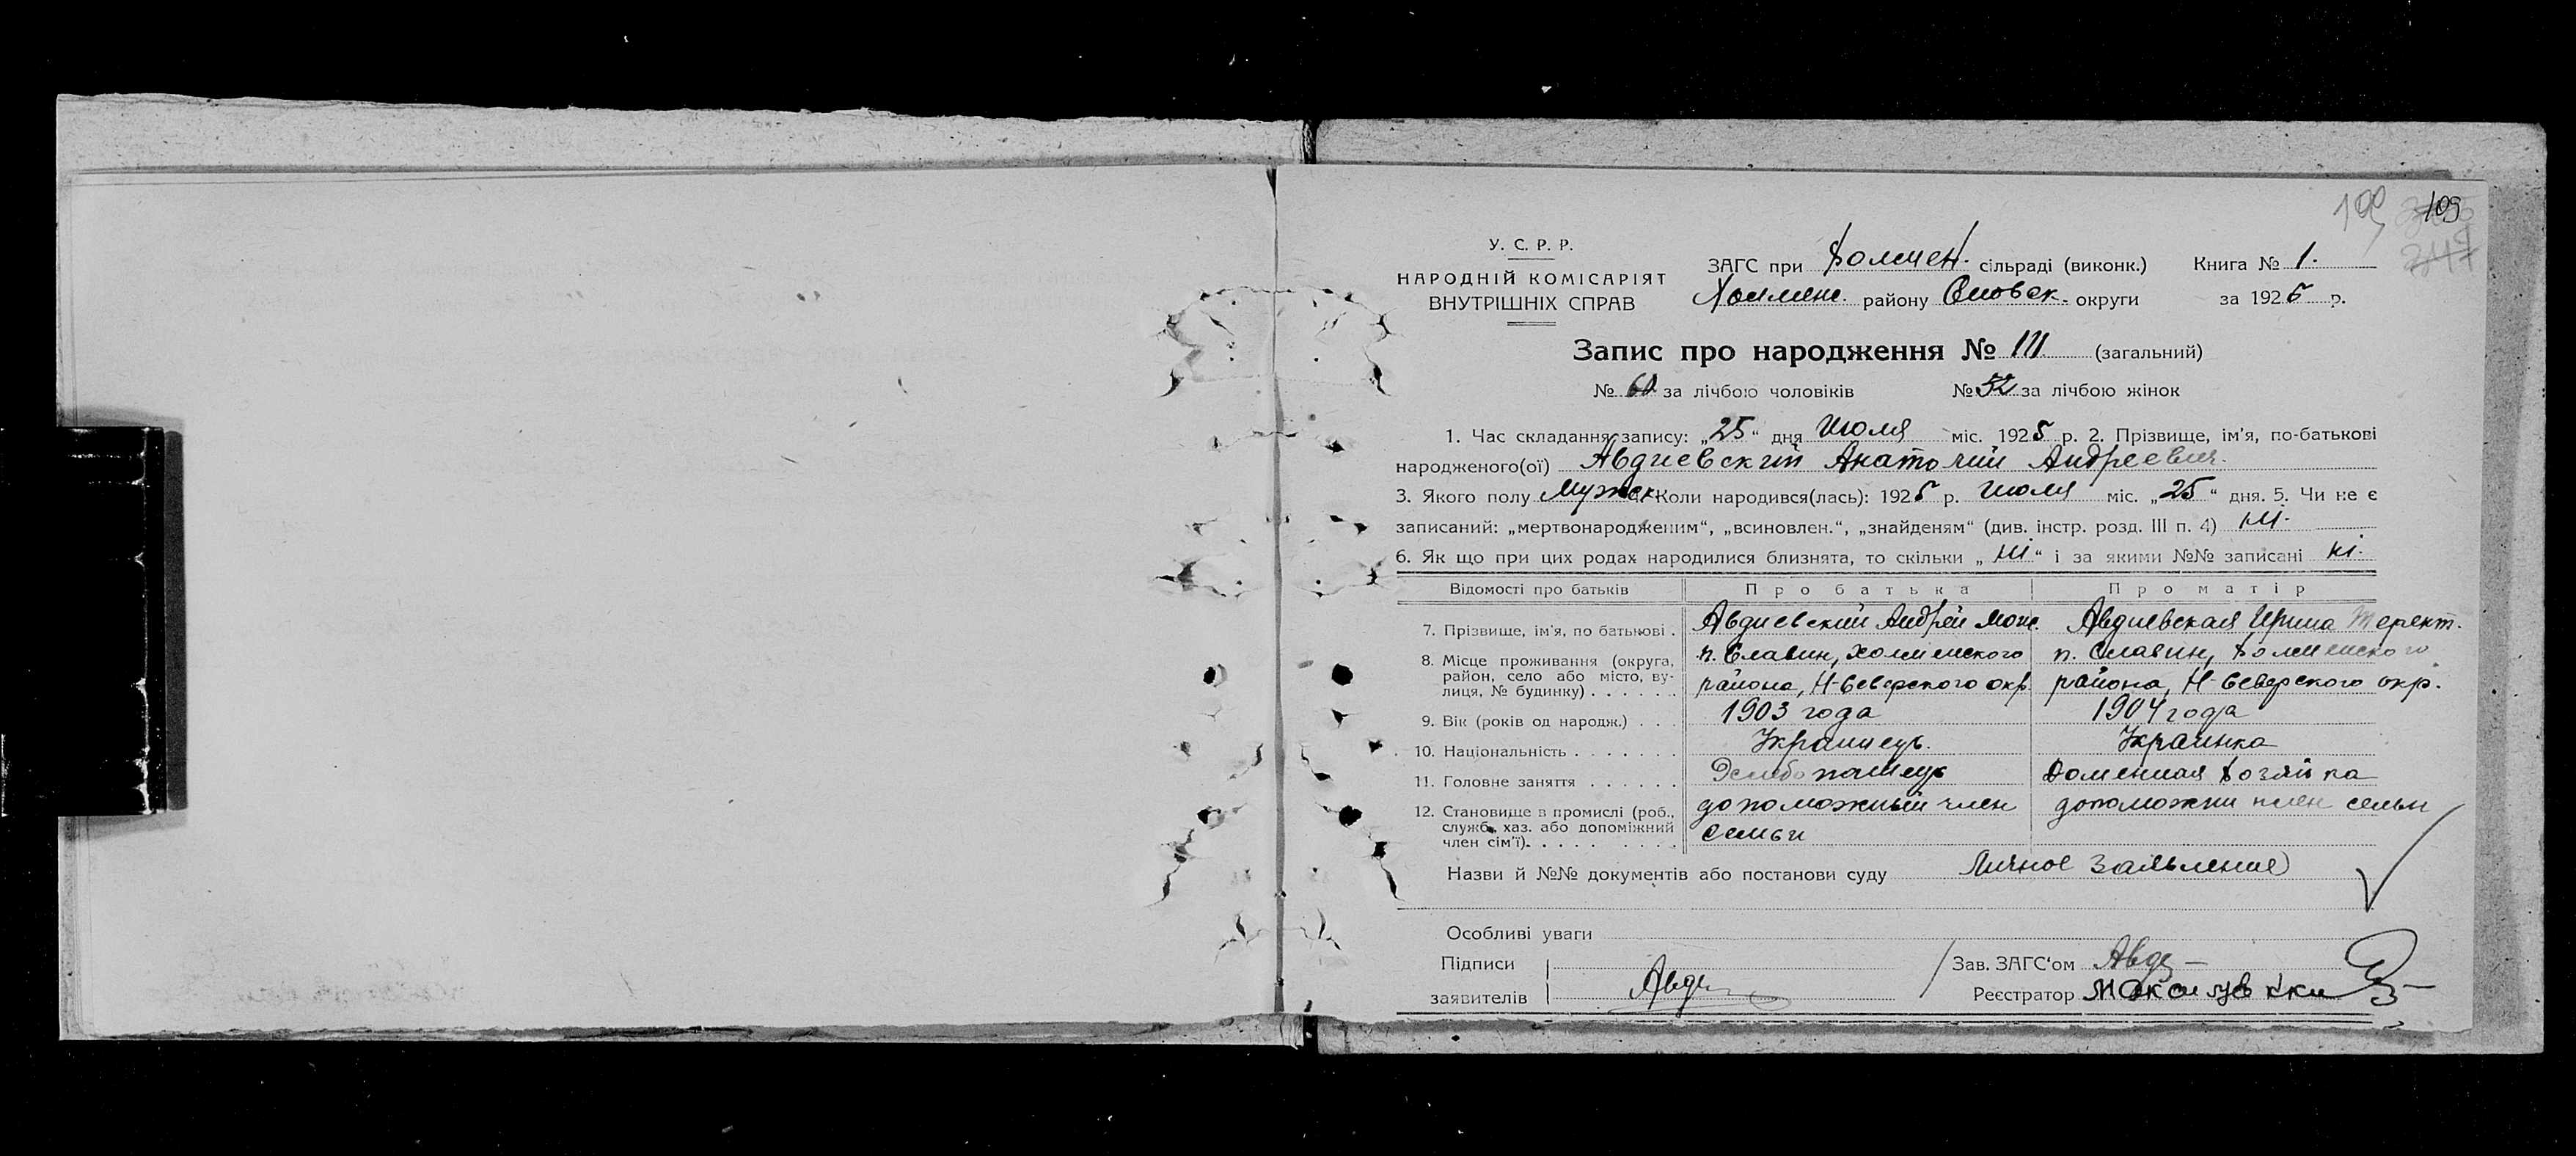 109
У. С. Р. Р.
НАРОДНІЙ КОМІСАРІЯТ
ВНУТРІШНІХ СПРАВ
ЗАГС при Холмен. сільраді (виконк.) Книга № 1.
Холменс. району округи за 1925 р.
Запис про народження № 111. (загальний)
№ за лічбою чоловіків № 52 за лічбою жінок
1. Час складання запису: „25“ дня Июля міс. 1925 р. 2. Прізвище, ім'я, по-батькові
народженого(ої) Авдиевский Анатолий Андреевич.
3. Якого полу Мужск. Коли народився(лась): 1925 р. Июля міс. „25“ дня. 5. Чи не є
записаний: „мертвонародженим“, „всиновлен.“, „знайденям“ (див. інстр. розд. III п. 4) ні.
6. Як що при цих родах народилися близнята, то скільки „ні“ і за якими №№ записані ні.
Відомості про батьків Про батька Про матір
7. Прізвище, ім'я, по батькові . Авдиевский Андрей Авдиевская Ирина Терент.
8. Місце проживання (округа, район, село або місто, вулиця, № будинку) . . . . . .
п. Славин, Холменского п. Славин, Холменского
района, Н-Северского окр. района, Н-Северского окр.
9. Вік (років од народж.) . . . 1903 года 1904 года
10. Національність . . . . . . . Украинец. Украинка
11. Головне заняття . . . . . . Домашная хозяйка
12. Становище в промислі (роб., служб., хаз. або допоміжний член сім'ї). . . . . . . . . .
допоможный член допоможни член семьи
семьи
Назви й №№ документів або постанови суду Личное заявление
Особливі уваги
Підписи
заявителів
Зав. ЗАГС'ом
Реєстратор